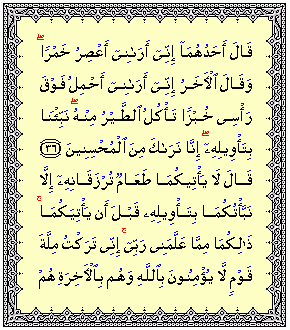 قَالَ أَحَدُهُمَآ إِنِّىٓ أَرَىٰنِىٓ أَعْصِرُ خَمْرًاۖ
وَقَالَ ٱلْءَاخَرُ إِنِّىٓ أَرَىٰنِىٓ أَحْمِلُ فَوْقَ
رَأْسِى خُبْزًا تَأْكُلُ ٱلطَّيْرُ مِنْهُۖ نَبِّئْنَا
بِتَأْوِيلِهِۦٓۖ إِنَّا نَرَىٰكَ مِنَ ٱلْمُحْسِنِينَ ﴿٣٦﴾
قَالَ لَا يَأْتِيكُمَا طَعَامٌ تُرْزَقَانِهِۦٓ إِلَّا
نَبَّأْتُكُمَا بِتَأْوِيلِهِۦ قَبْلَ أَن يَأْتِيَكُمَاۚ
ذَٰلِكُمَا مِمَّا عَلَّمَنِى رَبِّىٓۚ إِنِّى تَرَكْتُ مِلَّةَ
قَوْمٍ لَّا يُؤْمِنُونَ بِٱللَّهِ وَهُم بِٱلْءَاخِرَةِ هُمْ